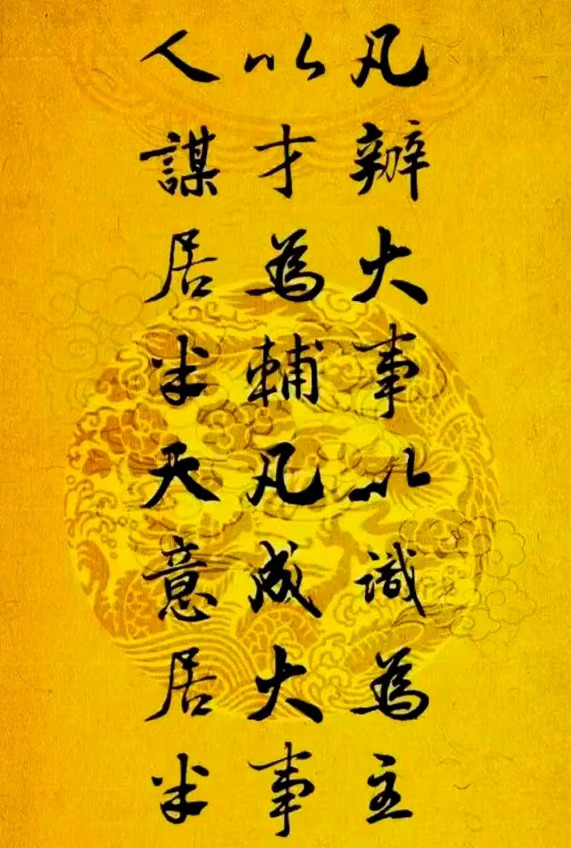 凡辦大事以識為主
以才為輔凡成大事
人謀居半天意居半